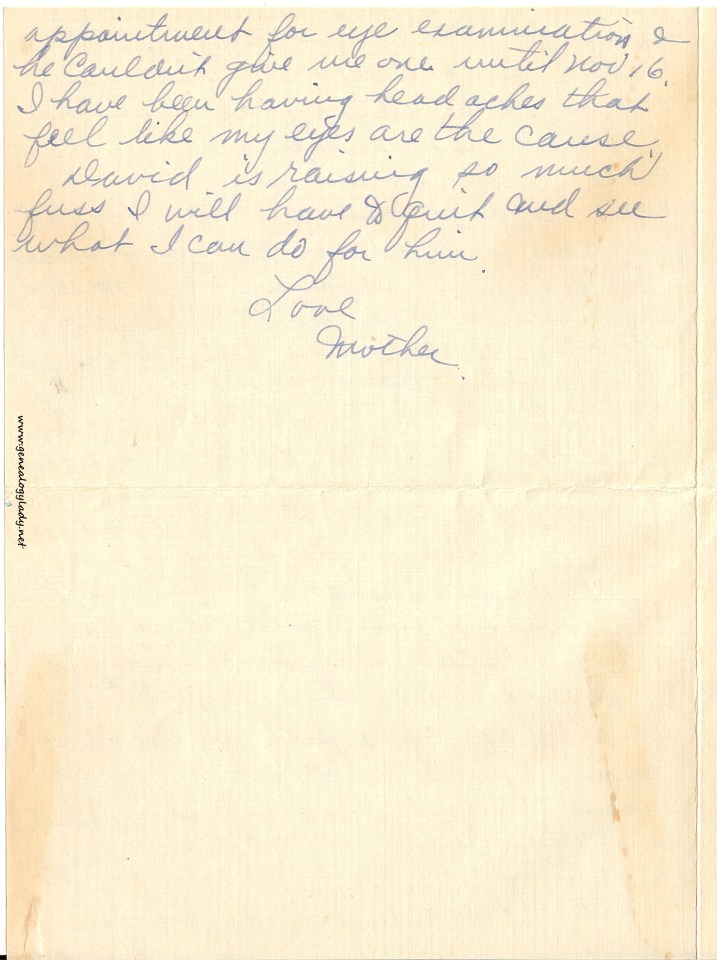 appointment for eye examination &
he couldn't give me one until Nov 16.
I have been having headaches that
feel like my eyes are the cause.
David is raising so much
fuss I will have to quit and see
what I can do for him.
Love
Mother.
www.genealogylady.net